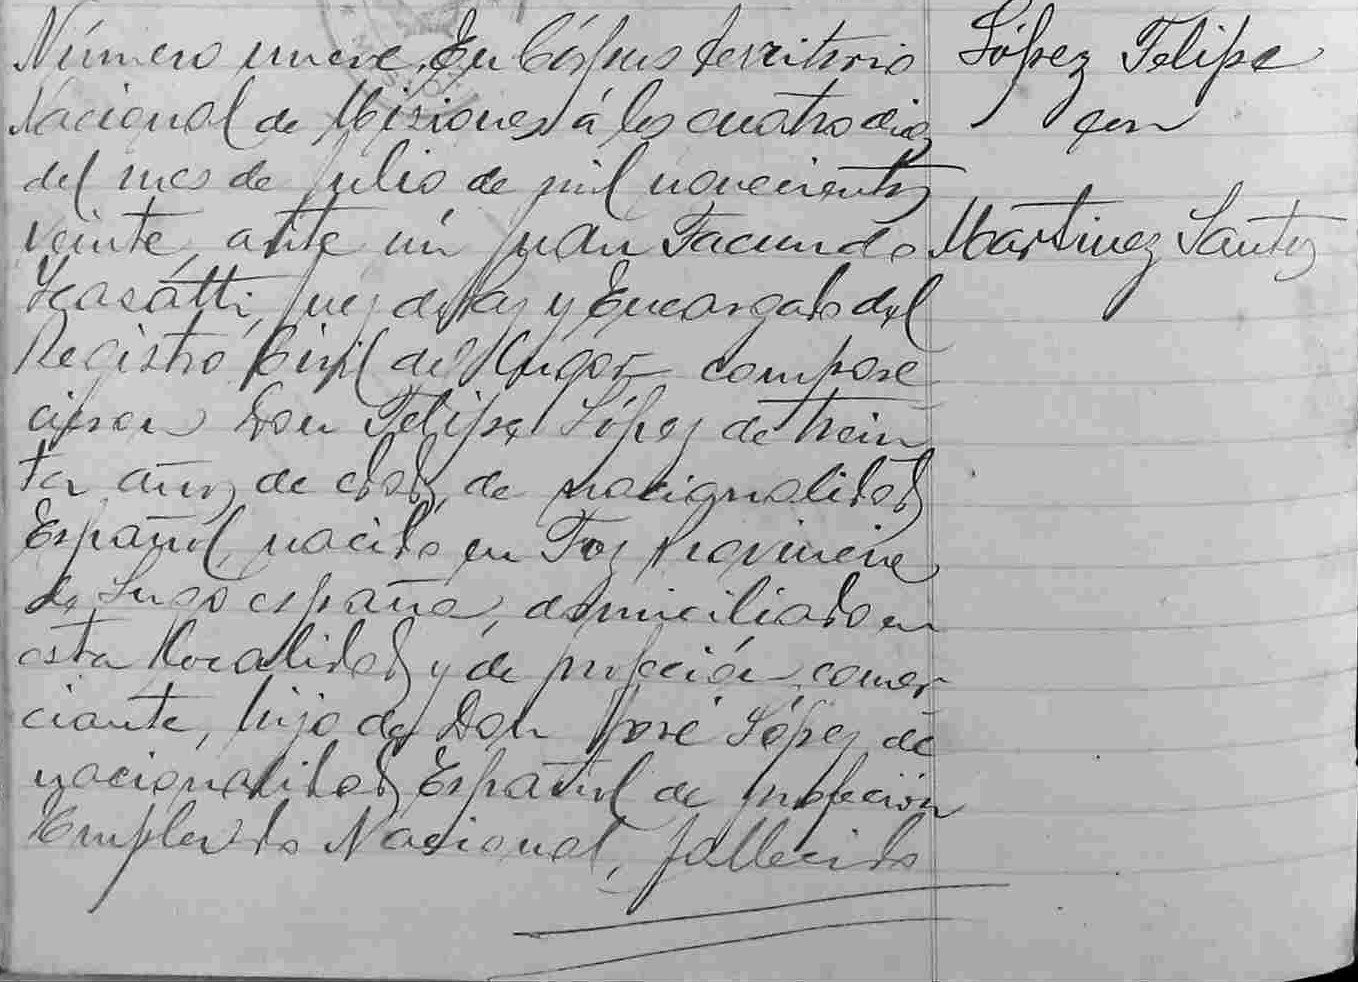 Número nueve. En Córpus territorio
Nacional de Misiones á los cuatro dias
del mes de Julio de mil novecientos
veinte, ante mi Juan Facundo
Juez de Paz y Encargado del
Registro Civil del lugar compare
cieron Don Felipe López de trein
ta años de edad, de nacionalidad
Español, nacido en Foz Provincia
de Lugo españa, domiciliado en
esta localidad y de profeción comer
ciante, hijo de Don José López de
nacionalidad Español de profeción
Empleado Nacional, fallecido
López Felipe
con
Martinez Santos